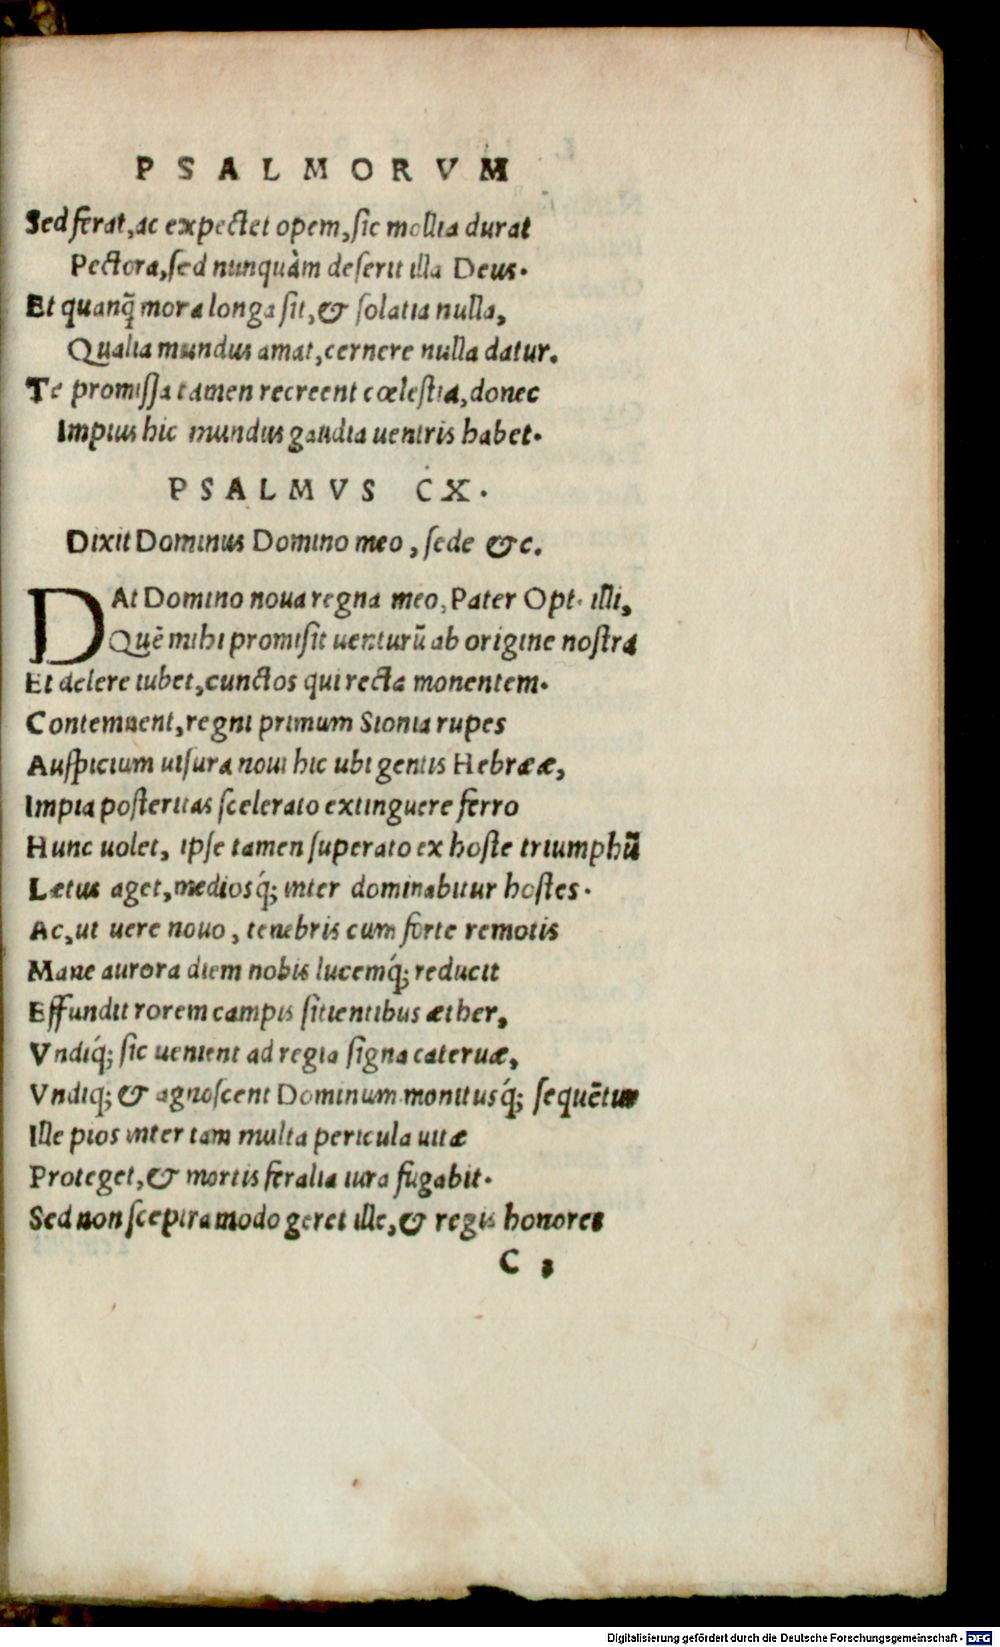 PSALMORVM
Sed ferat, ac expectet opem, sic mollia durat
Pectora, sed nunquàm deserit illa Deus.
Et quanq̃ mora longa sit, & solatia nulla,
Qualia mundus amat, cernere nulla datur.
Te promissa tamen recreent cœlestia, donec
Impius hic mundus gaudia uentris habet.
PSALMVS CX.
Dixit Dominus Domino meo, sede &c.
DAt Domino noua regna meo, Pater Opt. illi,
Quẽ mihi promisit uenturũ ab origine nostra
Et delere iubet, cunctos qui recta monentem.
Contemnent, regni primum Sionia rupes
Auspicium uisura noui hic ubi gentis Hebrææ,
Impia posteritas scelerato extinguere ferro
Hunc uolet, ipse tamen superato ex hoste triumphũ
Lætus aget, mediosq́; inter dominabitur hostes.
Ac, ut uere nouo, tenebris cum forte remotis
Mane aurora diem nobis lucemq́; reducit
Effundit rorem campis sitientibus æther,
Vndiq́; sic uenient ad regia signa cateruæ,
Vndiq; & agnoscent Dominum monitusq́; sequẽtur
Ille pios inter tam multa pericula uitæ
Proteget, & mortis feralia iura fugabit.
Sed non sceptra modo geret ille, & regis honores
C
Digitalisierung gefördert durch die Deutsche Forschungsgemeinschaft - DFG